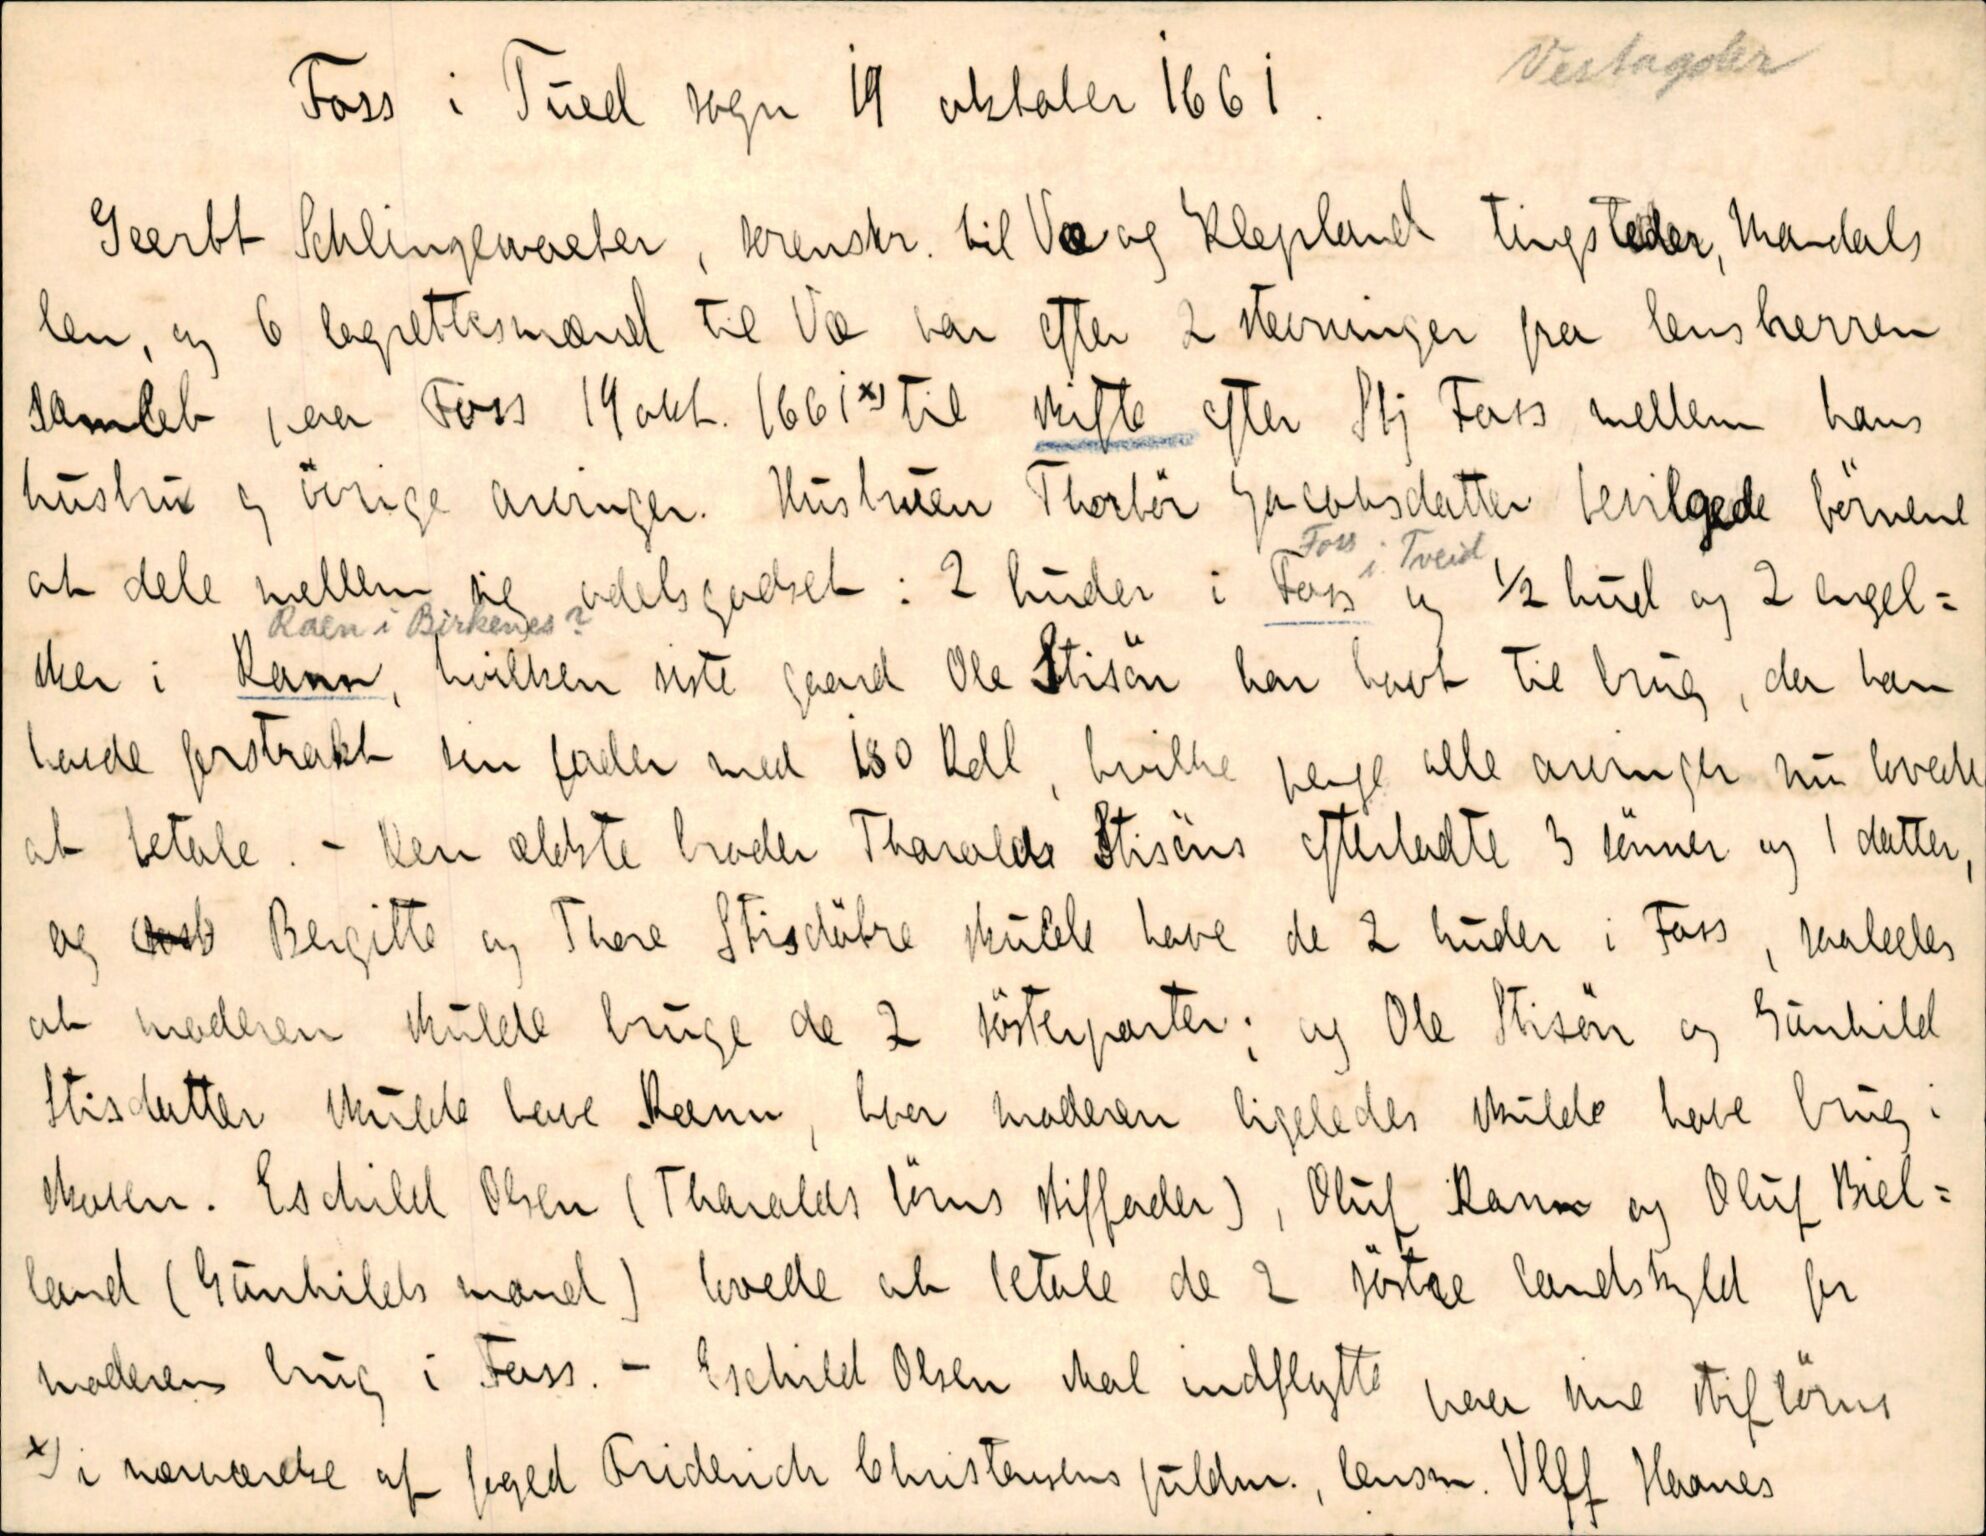 Vestagder
Foss i Tued sogn 19 oktober 1661.
Geerbt Schlingewaeter, sorenskr. til Væ og Klepland tingsteder, Mandals
len, og 6 lagrettesmænd til Væ var efter 2 stevninger fra lensherren
samlet paa Foss 19 okt. 1661 x) til skifte efter Stj Foss mellem hans
hustru og övrige arvinger. Hustruen Thorbör Jacobsdatter bevilgede börnene
Foss i Tveid
at dele mellem sig odelsgodset: 2 huder i Foss og 1/2 hud og 2 engel=
Raen i Birkenes?
sker i Rann, hvilken siste gaard Ole Stisön har havt til brug, da han
havde forstrakt sin fader med 180 Rdl, hvilke penge alle arvinger nu lovede
at betale. - Den ældste broder Tharalds Stisöns efterladte 3 sönner og 1 datter,
og Bergitte og Thore Stisdötre skulde have de 2 huder i Foss, saaledes
at moderen skulde bruge de 2 sösterparter; og Ole Stisön og Gunhild
Stisdatter skulde have Rann, hvor moderen ligeledes skulde have brug i
skoven. Eschild Olsen (Tharalds börns stiffader), Oluf Rann og Oluf Biel=
land (Gunhilds mand) lovede at betale de 2 söstre landskyld for
moderens brug i Foss. - Eschild Olsen skal indflytte paa sine stifbörns
x) i nærværelse af foged Friderich Christensens fuldm., lensm. Ulff Haanes